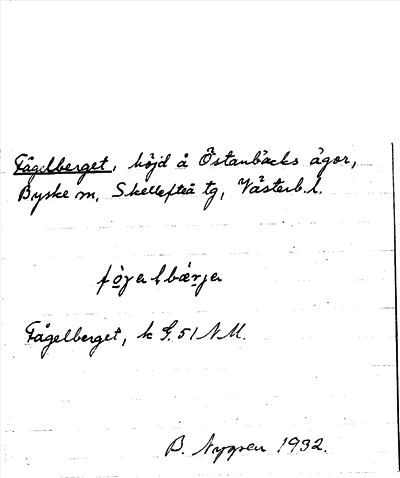 Fågelberget, höjd å Östanbäcks ägor,
Byske sn, Skellefteå tg, Västerb.l.
fò̱γalbæ̀rja
Fågelberget, k G. 51 N M.
B. Nygren 1932.